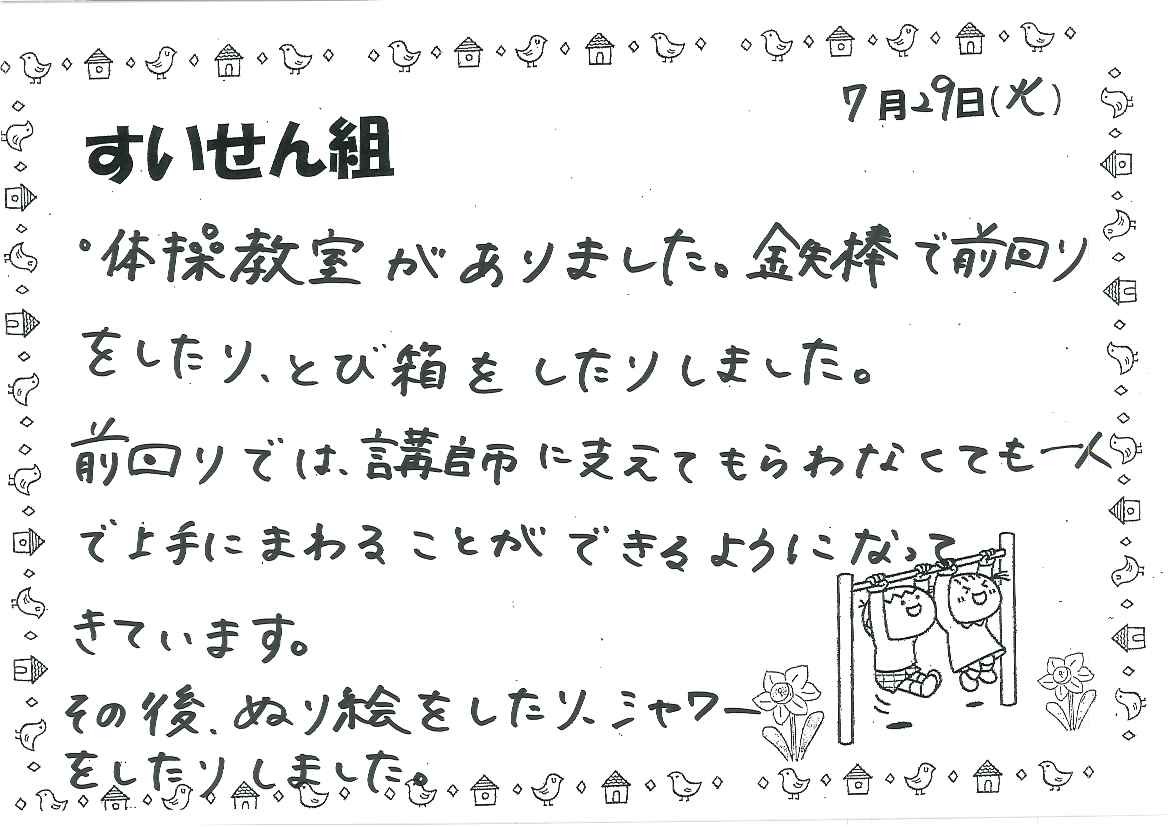 7月29日(火)
すいせん組
・体操教室がありました。鉄棒で前回り
をしたり、とび箱をしたりしました。
前回りでは、講師に支えてもらわなくても一人
で上手にまわることができるようになって
きています。
その後、ぬり絵をしたり、シャワー
をしたりしました。